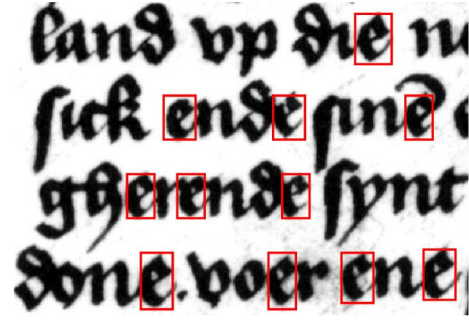 land vp die
sick ende sinē
gherende synt
done. voer ene